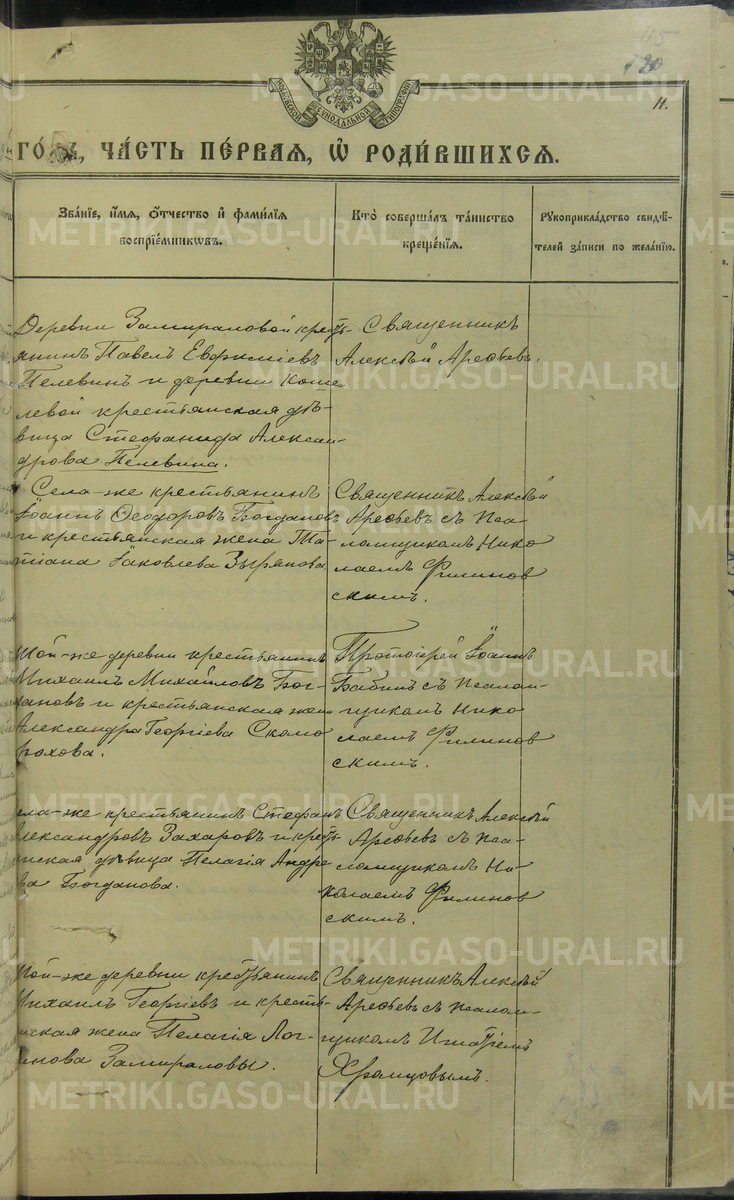 115
120
МОСКОВСКОЙ СѴНОДАЛЬНОЙ ТИПОГРАФІИ
11.
ГО́ДЪ, ЧА́СТЬ ПЕ́РВАЯ, Ѡ҆ РОДИ́ВШИХСѦ.
Зва́нїе, и҆́мѧ, ѻ҆́тчество и҆ фами́лїѧ воспрїе́мникѡвъ.
Кто̀ соверша́лъ та́инство креще́нїѧ.
Рꙋкоприкла́дство свидѣ́телей за́писи по жела́нїю.
Деревни Замираловой кресть-
янинъ Павелъ Евфиміевъ
Пелевинъ и деревни Коше
левой крестьянская дѣ-
вица Стефанида Алексан-
дрова Пелевина.
Священникъ
Алексѣй Арефьевъ.
Села-же крестьянинъ
Іоаннъ Ѳеодоровъ Богдановъ
и крестьянская жена Та-
тіана Іаковлева Зырянова.
Священникъ Алексѣй
Арефьевъ съ Пса-
ломщикомъ Нико
лаемъ Филинов
скимъ.
Той-же деревни крестьянинъ
Михаилъ Михайловъ Бог-
дановъ и крестьянская жена
Александра Георгіева Скомо
рохова.
Протоіерей Іоаннъ
Бабинъ съ Псалом-
щикомъ Нико
лаемъ Филинов
скимъ.
ела-же крестьянинъ Стефанъ
Александровъ Захаровъ и кресть-
янская дѣвица Пелагія Андре
ва Богданова.
Священникъ Алексѣй
Арефьевъ съ Пса-
ломщикомъ Ни-
колаемъ Филинов
скимъ.
Той-же деревни крестьянинъ
Михаилъ Георгіевъ и кресть-
янская жена Пелагія Лог-
инова Замираловы.
Священникъ Алексѣй
Арефьевъ съ псалом-
щикомъ Игнатіемъ
Храмцовымъ.
METRIKI.GASO-URAL.RU